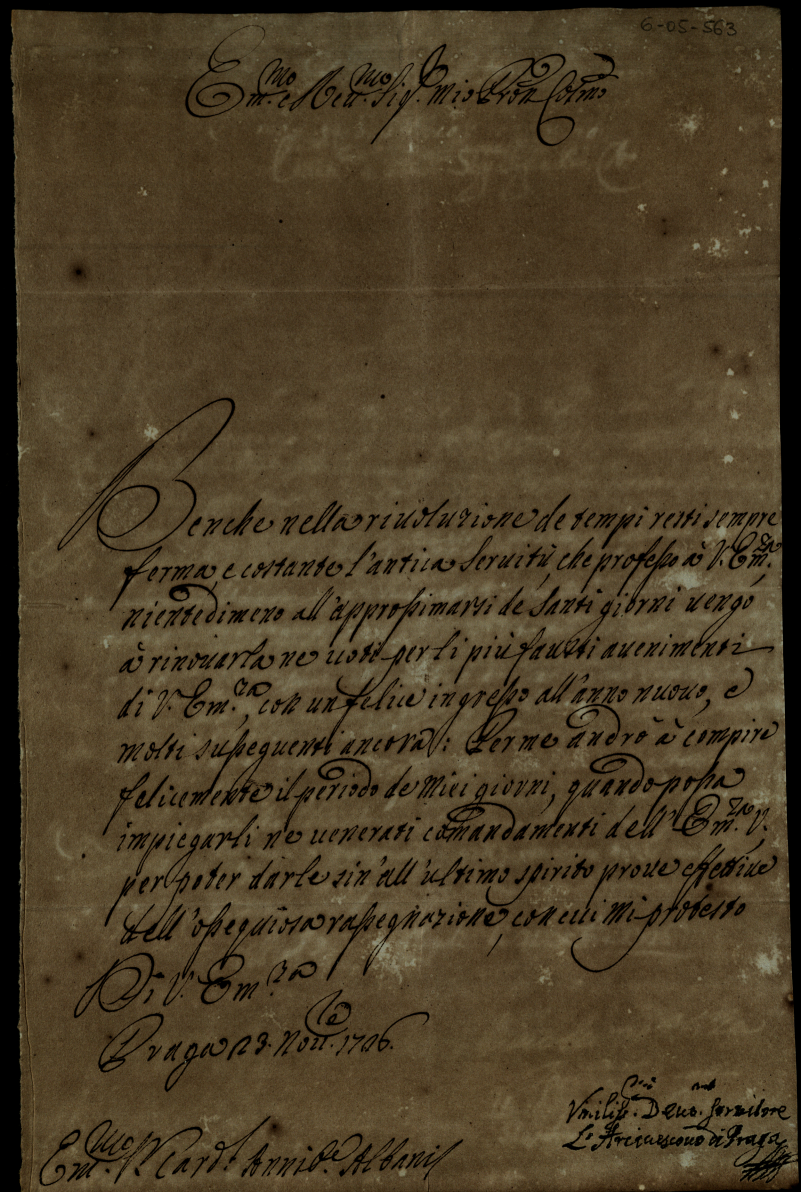 6-05-563
Em.mo e Reu.mo Sig.r Mio Pron Colmo
Benche nella riuoluzione de tempi resti sempre
ferma, e costante l'antica Seruitù, che professo à V. Em.za,
nientedimeno all'approssimarsi de Santi giorni uengo
à rinouarla ne uoti per li più fausti auenimenti
di V. Em.za, con un felice ingresso all'anno nuouo, e
molti susseguenti ancora: Per me andrò à compire
felicemente il periodo de Miei giorni, quando possa
impiegarli ne uenerati comandamenti dell' Em.za V.,
per poter darle sin'all'ultimo spirito proue effettiue
dell'ossequiosa rassegnazione, con cui Mi protesto
Di V. Em.za
Praga 23. Nou.re 1726.
Vmiliss. Deuo. Seruitore
L'Arciuescouo di Praga
Em.mo S.r Card.l Annib.e Albani